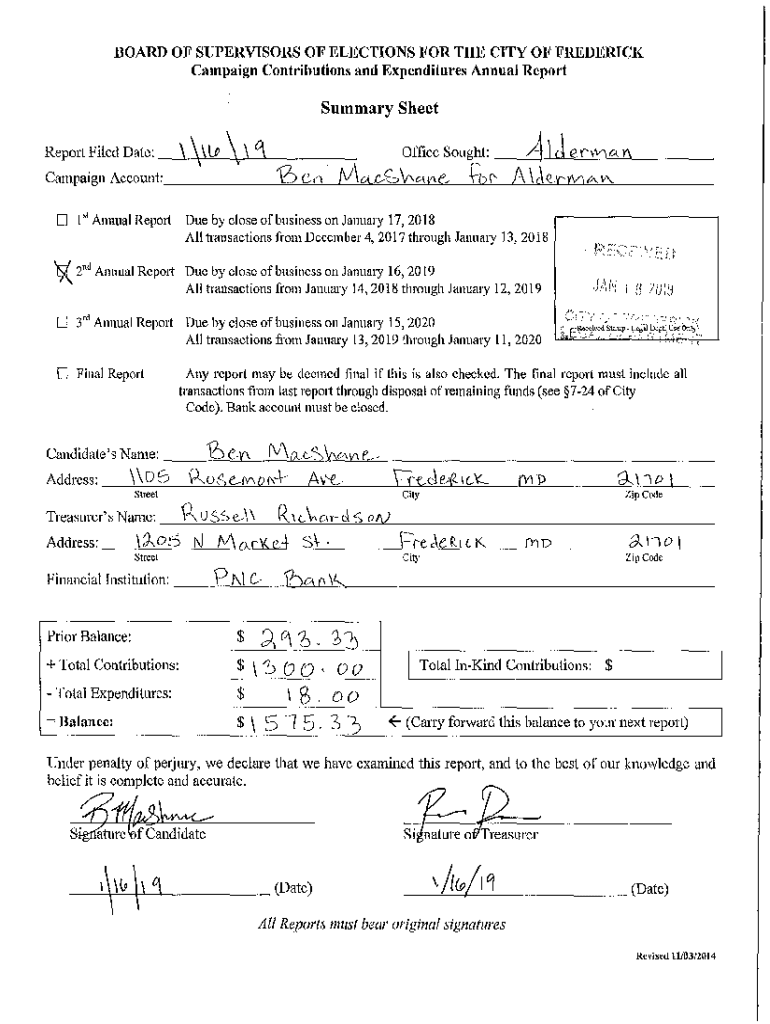 BOARD OF SUPERVISORS OF ELECTIONS FOR THE CITY OF FREDERICK
Campaign Contributions and Expenditures Annual Report
Summary Sheet
Report Filed Date: 1/16/19 Office Sought: Alderman
Campaign Account: Ben MacShane for Alderman
☐ 1st Annual Report Due by close of business on January 17, 2018
All transactions from December 4, 2017 through January 13, 2018
☒ 2nd Annual Report Due by close of business on January 16, 2019
All transactions from January 14, 2018 through January 12, 2019
☐ 3rd Annual Report Due by close of business on January 15, 2020
All transactions from January 13, 2019 through January 11, 2020
RECEIVED
JAN 18 2019
Received Stamp - Legal Dept. Use Only
☐ Final Report Any report may be deemed final if this is also checked. The final report must include all
transactions from last report through disposal of remaining funds (see §7-24 of City
Code). Bank account must be closed.
Candidate's Name: Ben MacShane
Address: 1105 Rosemont Ave Frederick MD 21701
Street City Zip Code
Treasurer's Name: Russell Richardson
Address: 1205 N Market St. Frederick MD 21701
Street City Zip Code
Financial Institution: PNC Bank
Prior Balance: $ 293.33
+ Total Contributions: $ 1300.00 Total In-Kind Contributions: $
- Total Expenditures: $ 18.00
= Balance: $ 1575.33 ← (Carry forward this balance to your next report)
Under penalty of perjury, we declare that we have examined this report, and to the best of our knowledge and
belief it is complete and accurate.
BMacShane
Signature of Candidate Signature of Treasurer
1/16/19 (Date) 1/16/19 (Date)
All Reports must bear original signatures
Revised 11/03/2014